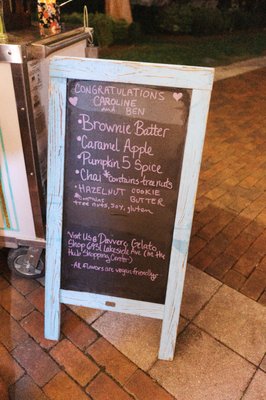 CONGRATULATIONS
CAROLINE
AND BEN
• Brownie Batter
• Caramel Apple
• Pumpkin 5 Spice
• Chai *contains tree nuts
• HAZELNUT COOKIE
BUTTER
*contains
tree nuts, soy, gluten
Visit Us @ Davvero Gelato
Shop
Lakeside Ave (in the
Hub Shopping Center)
- All Flavors are vegan friendly